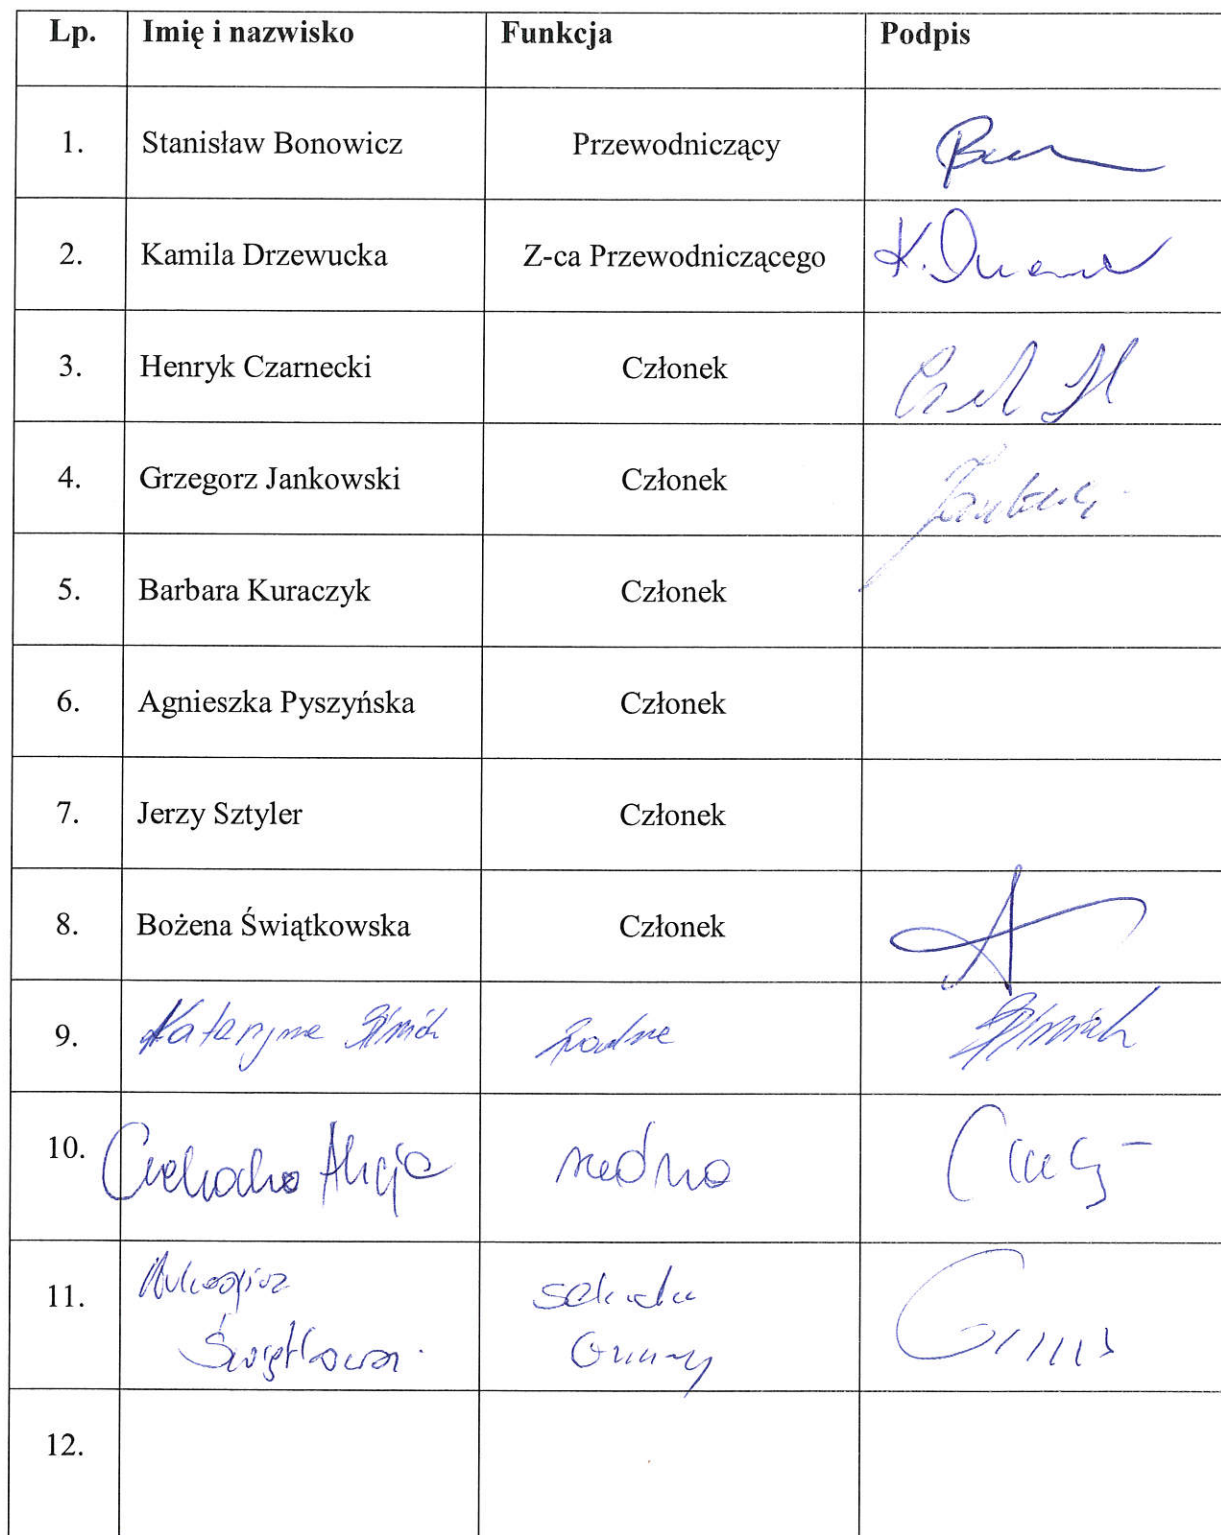 Lp. Imię i nazwisko Funkcja Podpis
1. Stanisław Bonowicz Przewodniczący
2. Kamila Drzewucka Z-ca Przewodniczącego K.
3. Henryk Czarnecki Członek
4. Grzegorz Jankowski Członek
5. Barbara Kuraczyk Członek
6. Agnieszka Pyszyńska Członek
7. Jerzy Sztyler Członek
8. Bożena Świątkowska Członek
9. Katarzyna radna
10. Alicja radna
11.
Gminy
12.